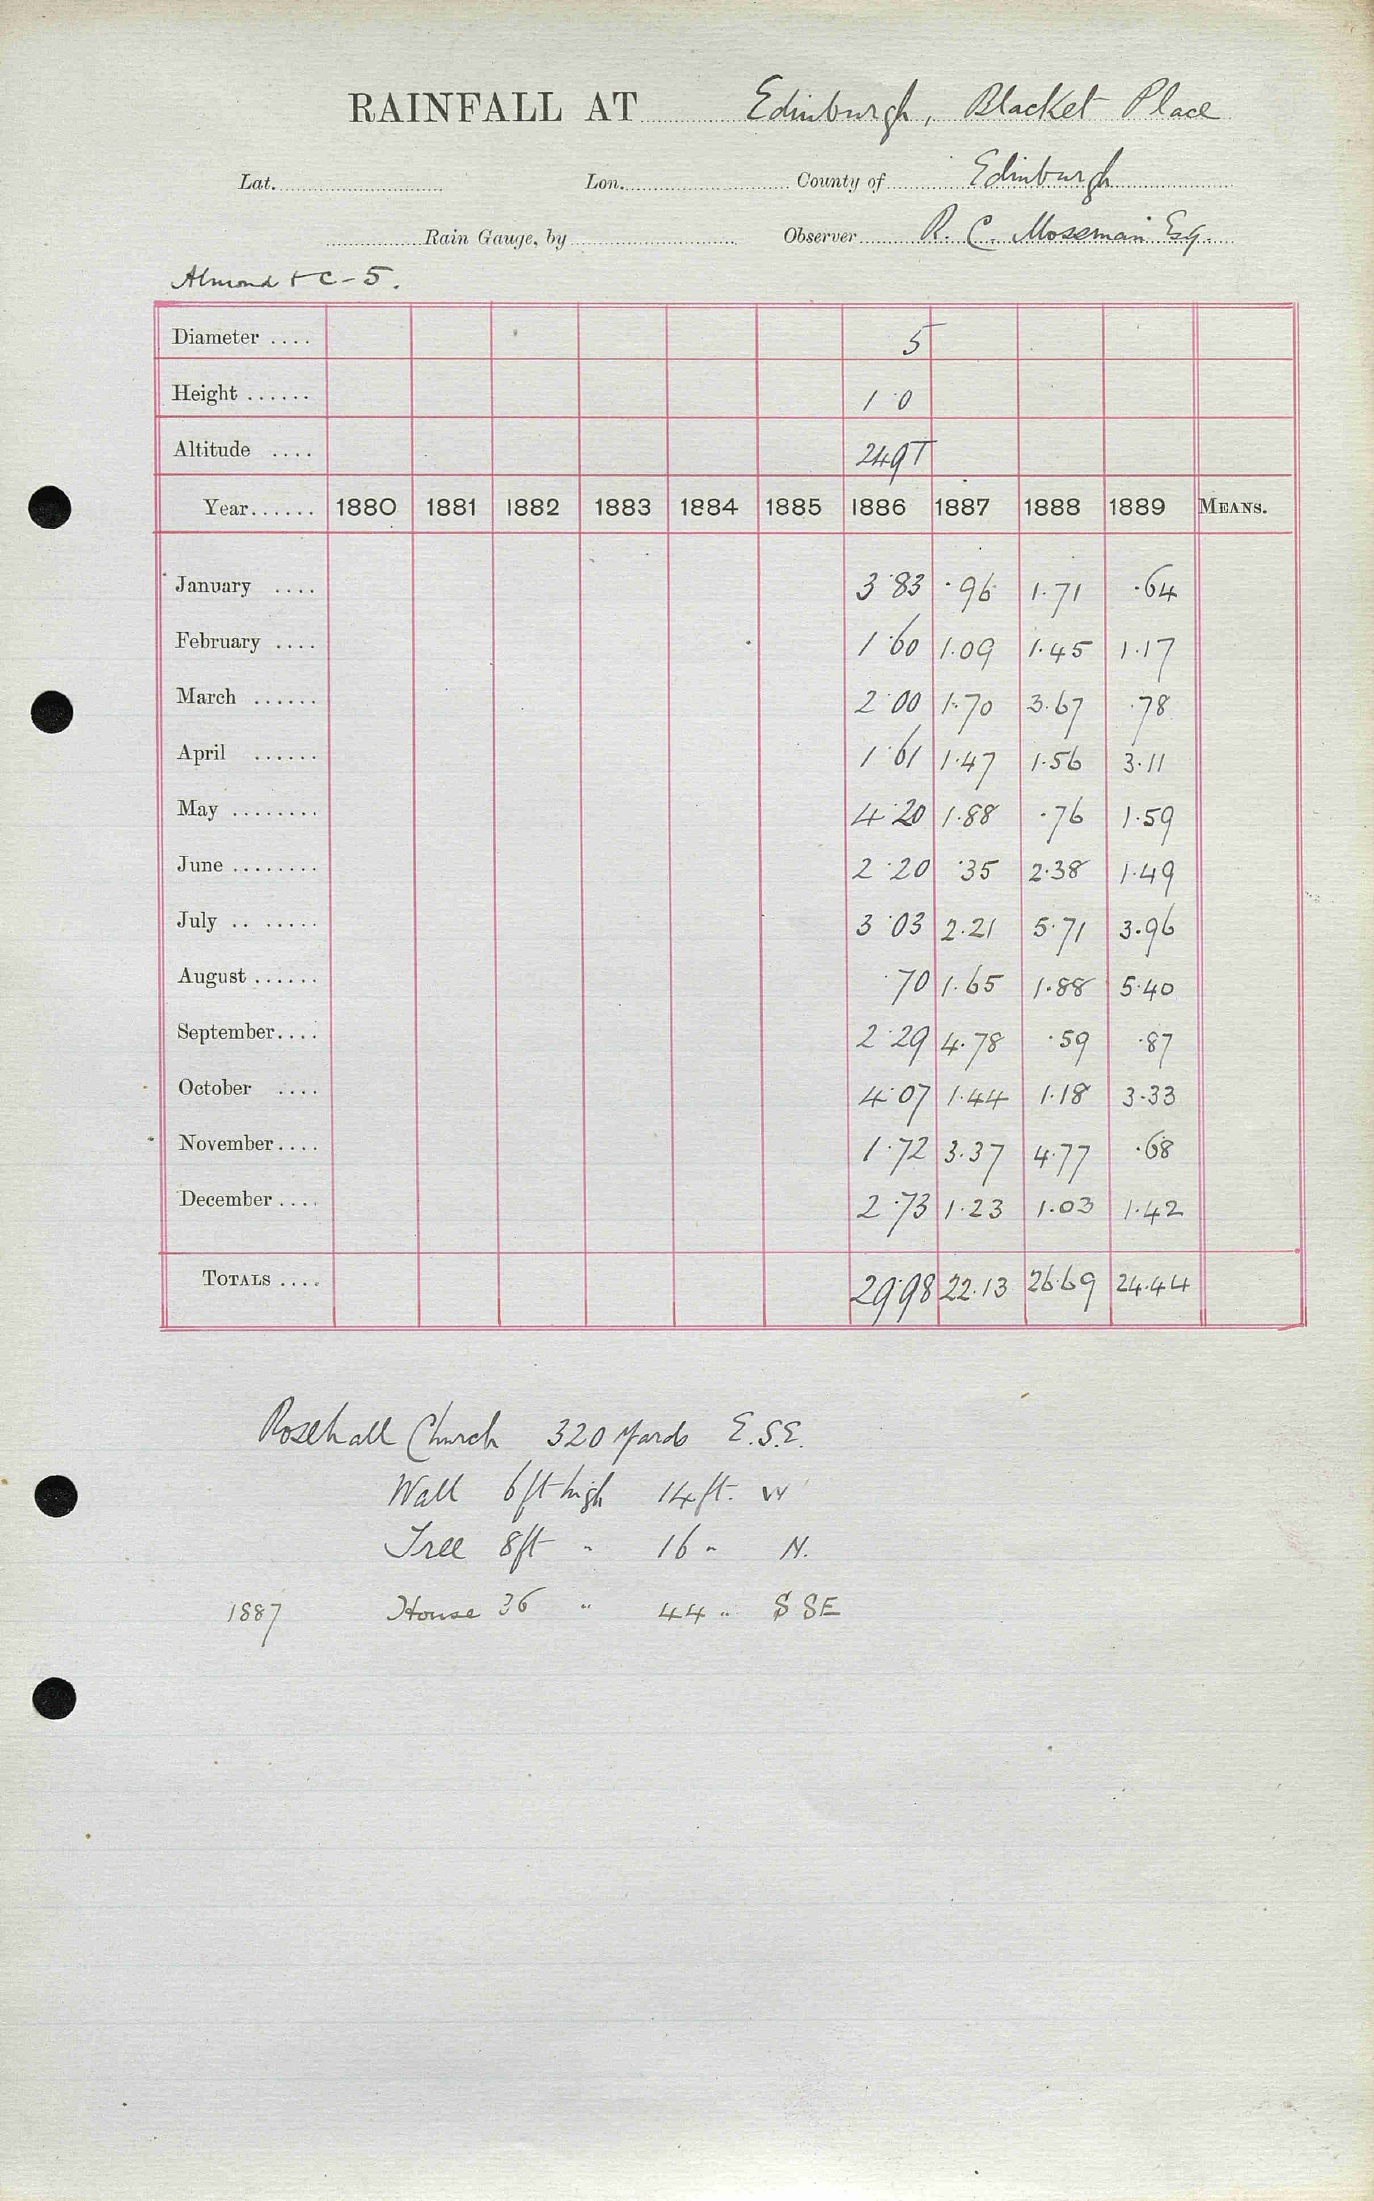 RAINFALL AT Edinburgh, Blacket Place
Lat. Lon. County of Edinburgh
Rain Gauge, by Observer R. C. Mossman Esq.
Almond & C - 5.
Diameter .... 5
Height ...... 1 0
Altitude .... 249T
Year...... 1880 1881 1882 1883 1884 1885 1886 1887 1888 1889 MEANS.
January .... 3·83 ·96 1·71 ·64
February .... 1·60 1·09 1·45 1·17
March ...... 2·00 1·70 3·67 ·78
April ...... 1·61 1·47 1·56 3·11
May ........ 4·20 1·88 ·76 1·59
June ........ 2·20 ·35 2·38 1·49
July .. ...... 3·03 2·21 5·71 3·96
August ...... ·70 1·65 1·88 5·40
September.... 2·29 4·78 ·59 ·87
October .... 4·07 1·44 1·18 3·33
November.... 1·72 3·37 4·77 ·68
December.... 2·73 1·23 1·03 1·42
TOTALS .... 29·98 22·13 26·69 24·44
Rosehall Church 320 Yards E.S.E.
Wall 6ft high 14ft. W
Tree 8ft " 16 " N.
1887 House 36 " 44 " SSE